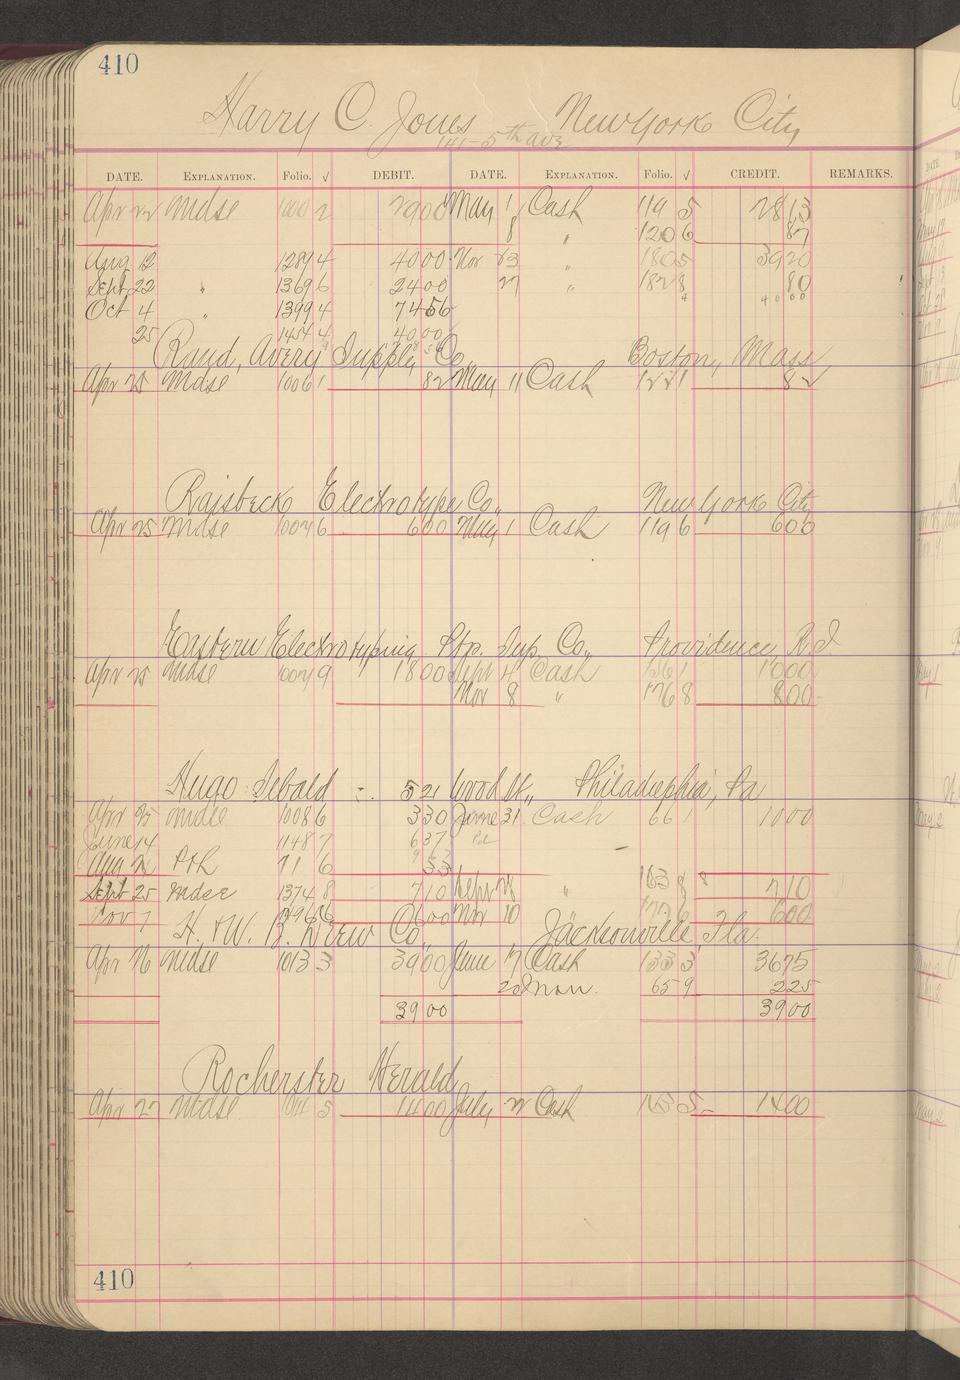 410
Harry C. Jones New York City
141-5th ave
DATE. EXPLANATION. Folio. √ DEBIT. DATE. EXPLANATION. Folio. √ CREDIT. REMARKS.
Apr 22 Mdse 1000 2 2900 May 1 Cash 119 5 2813
8 " 120 6 87
Aug 12 1289 4 4000 Nov 23 " 180 5 3920
Sept 22 " 1369 6 2400 27 " 182 8 80
Oct 4 " 1399 4 7456
25 1454 4 4000
Rand, Avery Supply Co., Boston, Mass
Apr 25 Mdse 1006 1 82 May 11 Cash 122 1 82
Raisbeck Electrotype Co., New York City
Apr 25 Mdse 1007 6 600 May 1 Cash 119 6 600
Eastern Electrotyping Ptg. Sup. Co., Providence, R.I.
Apr 25 Mdse 1007 9 1800 Sept 4 Cash 156 1 1000
Nov 8 " 176 8 800
Hugo Sebald 521 Wood St., Philadelphia, Pa
Apr 25 Mdse 1008 6 330 June 21 Cash 66 1 1000
June 14 1148 7 637
Aug 24 71 6 33
Sept 25 Mdse 1374 8 710 Sept 28 " 163 8 710
Nov 7 600 Nov 10 600
H. & W. B. Drew Co., Jacksonville Fla.
Apr 26 Mdse 1013 3 3900 June 7 Cash 133 3 3675
20 659 225
3900 3900
Rocherster Herald
Apr 27 Mdse 1014 5 1400 July 22 Cash 145 5 1400
410